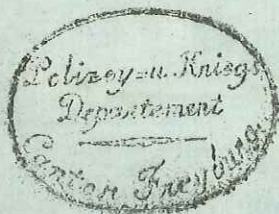 Polizey=u. Kriegs
Departement
Canton Freyburg.